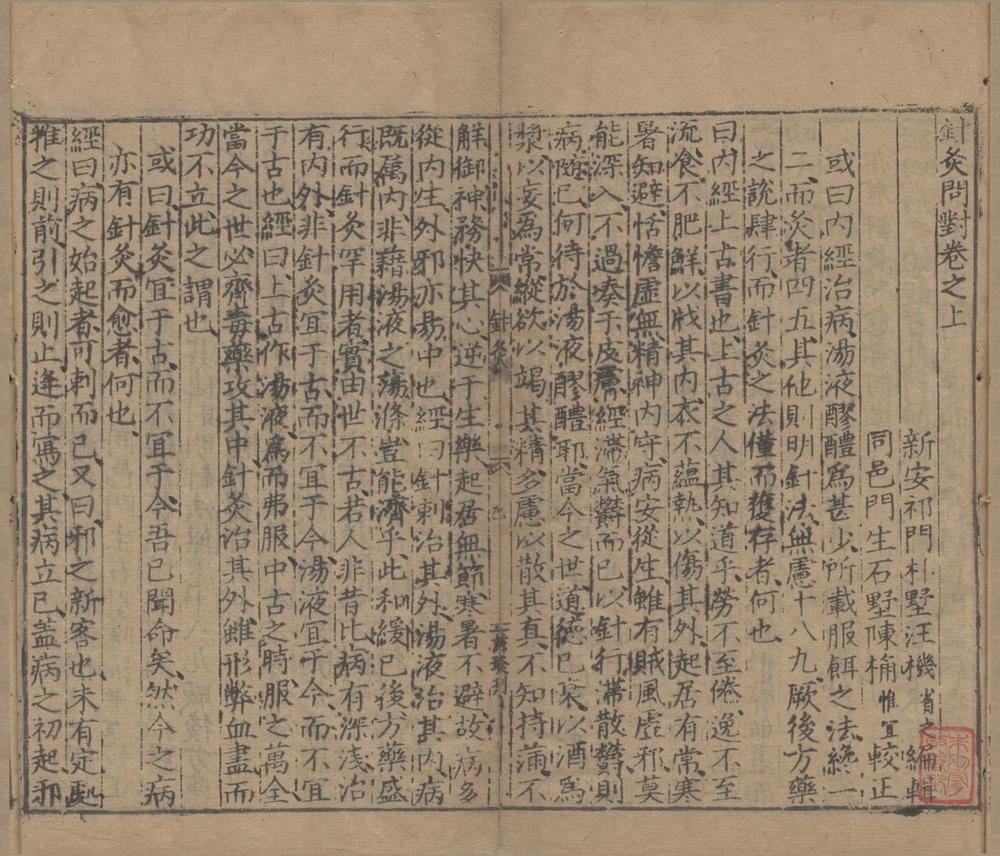 針灸問對卷之上
新安祁門朴墅汪機省之編輯
同邑門生石墅陳桷惟宜較正
或曰內經治病湯液醪醴爲甚少所載服餌之法纔一
二而灸者四五其他則明針法無慮十八九厥後方藥
之說肆行而針灸之法僅而獲存者何也
曰內經上古書也上古之人其知道乎勞不至倦逸不至
流食不肥鮮以戕其內衣不蘊熱以傷其外起居有常寒
暑知避恬憺虛無精神內守病安從生雖有賊風虛邪莫
能深入不過凑于皮膚經滯氣鬱而已以針行滯散鬱則
病隨已何待於湯液醪醴耶當今之世道德已衰以酒爲
漿以妄爲常縱欲以竭其精多慮以散其真不知持滿不
針灸
解御神務快其心逆于生樂起居無節寒暑不避故病多
從內生外邪亦易中也經曰針刺治其外湯液治其內病
既厲內非藉湯液之蕩滌豈能濟乎此和緩已後方藥盛
行而針灸罕用者實由世不古若人非昔比病有深淺治
有內外非針灸宜于古而不宜于今湯液宜于今而不宜
于古也經曰上古作湯液爲而弗服中古之時服之萬全
當今之世必齊毒藥攻其中針灸治其外雖形弊血盡而
功不立此之謂也
或曰針灸宜于古而不宜于今吾已聞命矣然今之病
亦有針灸而愈者何也
經曰病之始起者可刺而已又曰邪之新客也未有定處
推之則前引之則止逢而寫之其病立已蓋病之初起邪